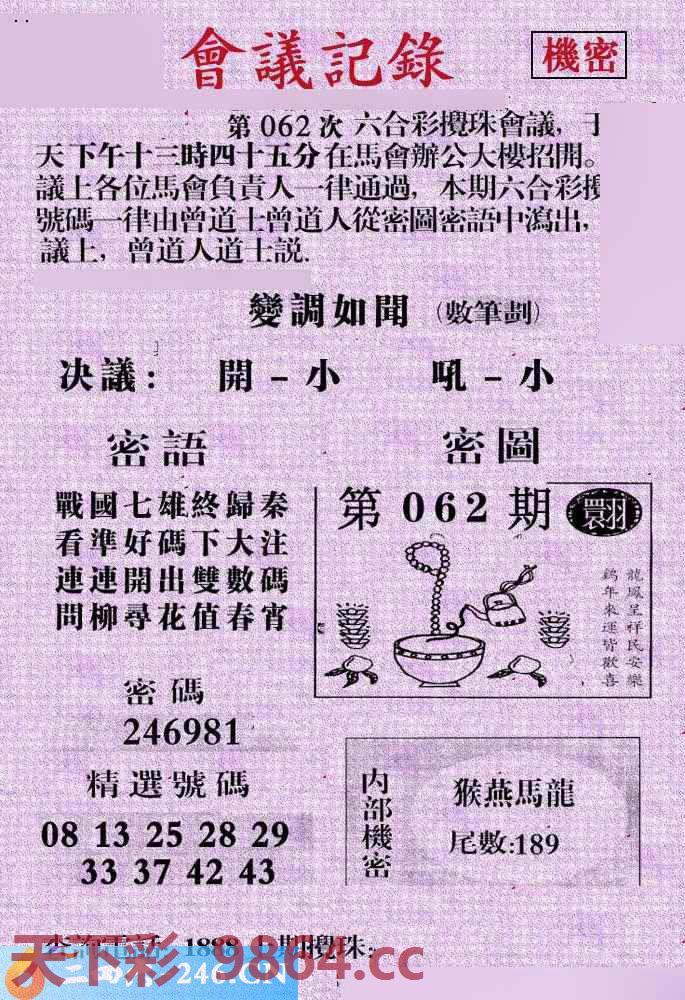 會議記錄
機密
第062次 六合彩攪珠會議，于
天下午十三時四十五分在馬會辦公大樓招開。
議上各位馬會負責人一律通過，本期六合彩攪
號碼一律由曾道士曾道人從密圖密語中瀉出，
議上，曾道人道士説.
變調如聞 (數筆劃)
决議: 開-小 吼-小
密語
戰國七雄終歸秦
看準好碼下大注
連連開出雙數碼
問柳尋花值春宵
密碼
246981
精選號碼
08 13 25 28 29
33 37 42 43
密圖
第062期
龍鳳呈祥民安樂
鷄年來運皆歡喜
内部機密
猴燕馬龍
尾數:189
查詢電話 1888 上期攪珠:
246.CN
天下彩 9864.cc